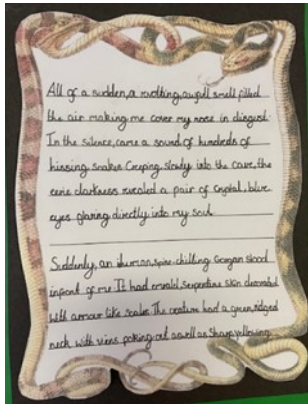 All of a sudden, a revolting, awfull smell filled
the air making me cover my nose in disgust.
In the silence, came a sound of hundreds of
hissing snakes. Creeping, slowly into the cave, the
eerie darkness revealed a pair of crystal, blue
eyes glaring directly into my soul.
Suddenly, an inhuman, spine-chilling Gorgon stood
infront of me. It had emerald, serpentine skin decorated
with armour like scales. The creature had a green, ridged
neck with viens poking out aswell as sharp, yellowing